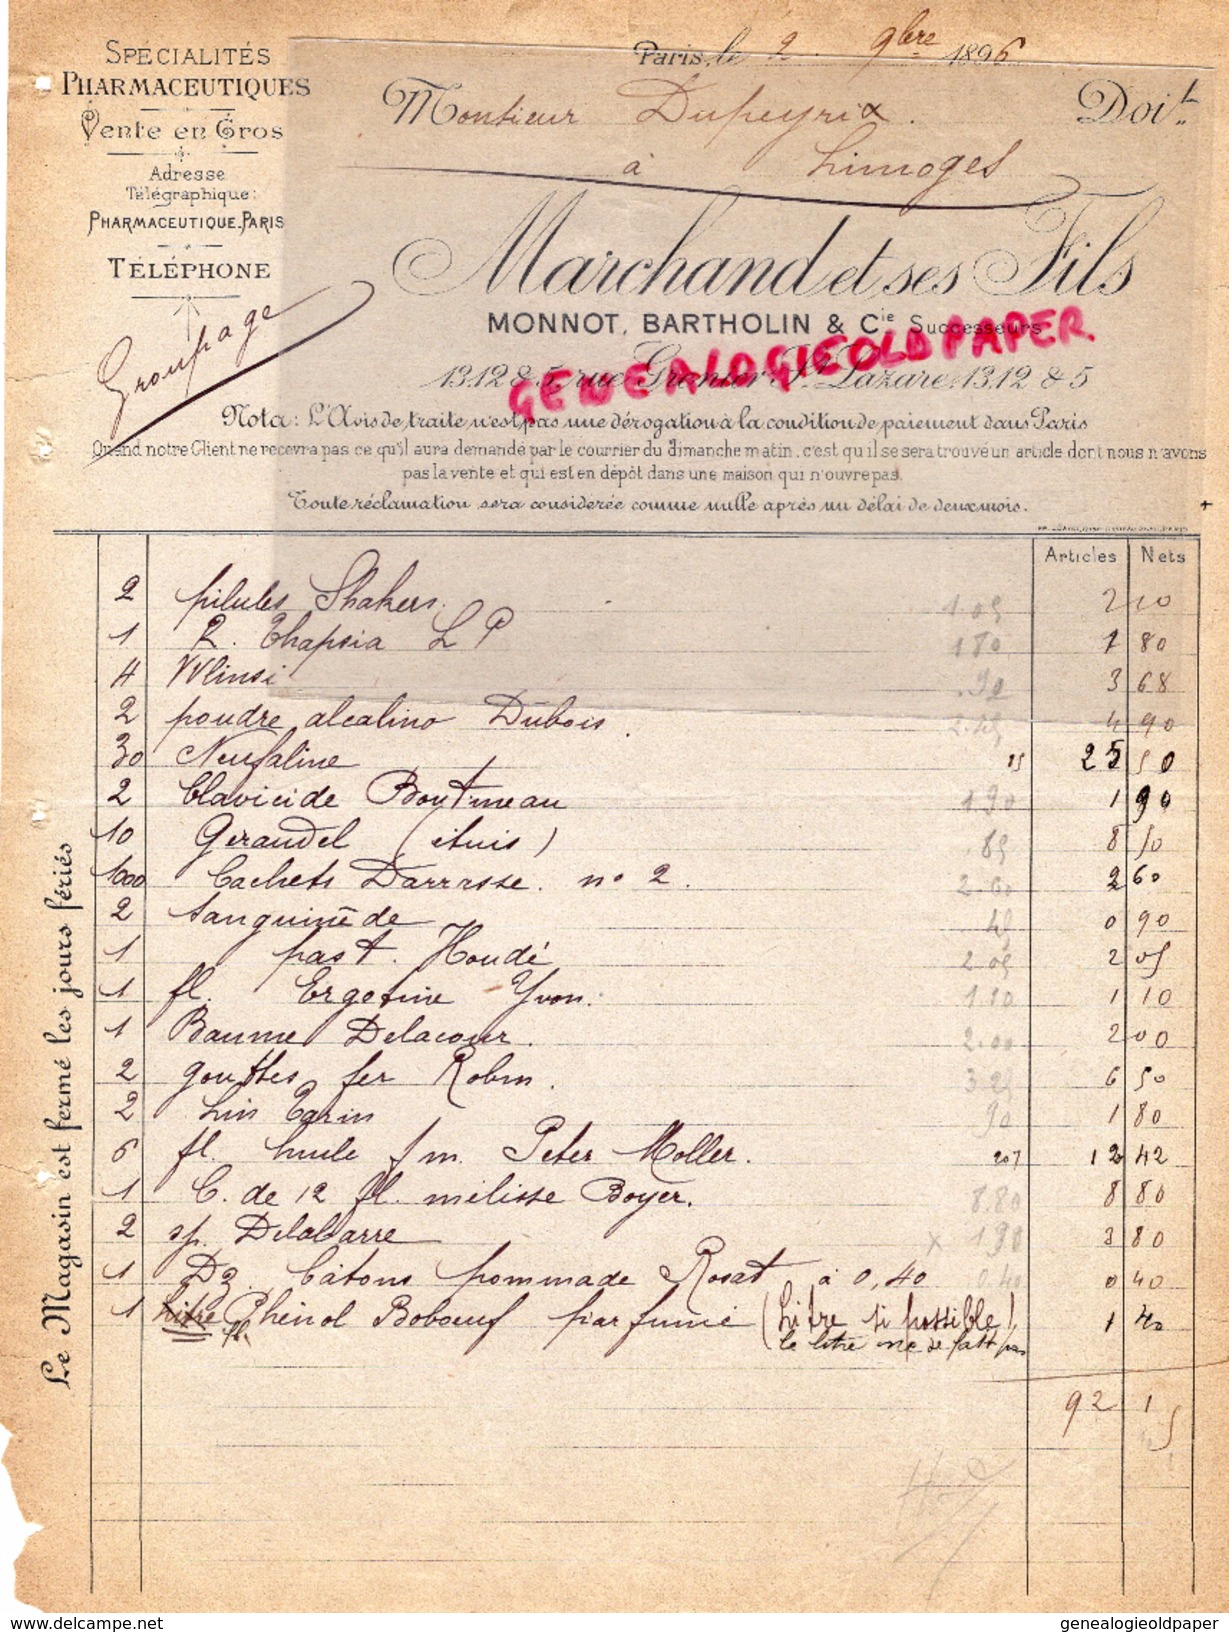 Paris, le 2 9bre 1896
SPÉCIALITÉS
PHARMACEUTIQUES
Vente en Gros
Adresse
Télégraphique:
PHARMACEUTIQUE.PARIS
TÉLÉPHONE
Groupage
Monsieur Dupeyrix. Doit
à Limoges
Marchand et ses Fils
MONNOT, BARTHOLIN & Cie Successeurs
GENEALOGIEOLDPAPER.
13,12 & 5, rue Grenier St Lazare, 13,12 & 5
Nota: L'Avis de traite n'est pas une dérogation à la condition de paiement dans Paris
Quand notre Client ne recevra pas ce qu'il aura demandé par le courrier du dimanche matin, c'est qu'il se sera trouvé un article dont nous n'avons
pas la vente et qui est en dépôt dans une maison qui n'ouvre pas.
Toute réclamation sera considérée comme nulle après un délai de deux mois.
Articles Nets
2 pilules Shakers. 1 05 2 10
1 R. Thapsia L P 1 80 1 80
4 Wlinsi .92 3 68
2 poudre alcalino Dubois. 2.45 4 90
30 Neufaline 85 25 50
2 Clavicide Boutmeau 1 90 1 90
10 Geraudel (étuis) .85 8 50
1000 Cachets Darrasse. no 2. 2.60 2 60
2 Sanguinède 45 0 90
1 past. Houdé 2.05 2 05
1 fl. Ergotine Yvon. 1.10 1 10
1 Baume Delacour. 2.00 2 00
2 gouttes fer Robin. 3.25 6 50
2 Lin Tarin 90 1 80
6 fl. huile f m. Peter Moller. 207 12 42
1 C. de 12 fl. mélisse Boyer. 8.80 8 80
2 sp. Delabarre x 1 90 3 80
1 Dz. Bâtons pommade Rosat à 0,40 0.40 0 40
1 litre fl Phénol Boboeuf parfumé (Litre si possible). 1 40
le litre ne se fait pas
92 15
Le Magasin est fermé les jours fériés
www.delcampe.net
genealogieoldpaper